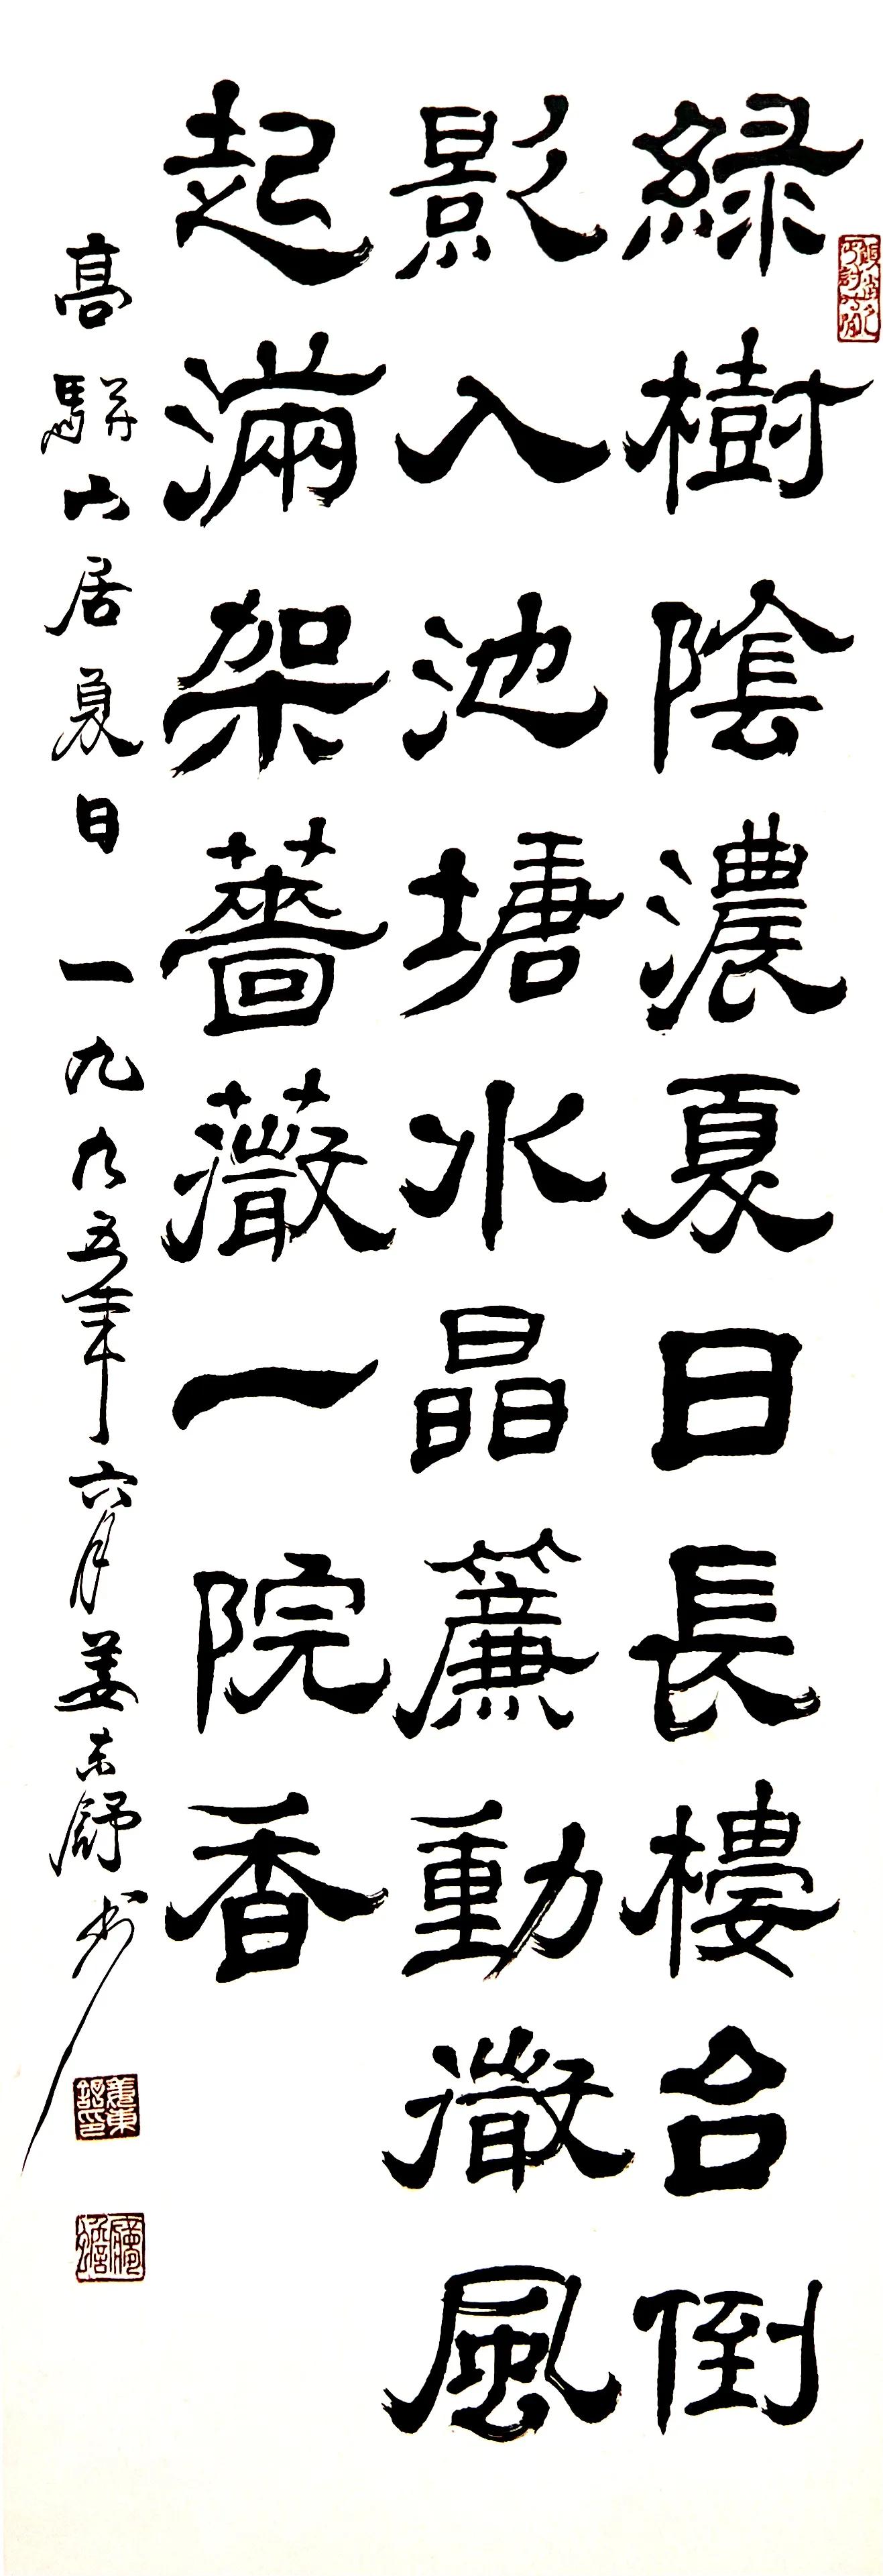 綠樹陰濃夏日長樓台倒
影入池塘水晶簾動微風
起滿架薔薇一院香
高駢山居夏日 一九九五年六月姜东舒书
姜東舒印